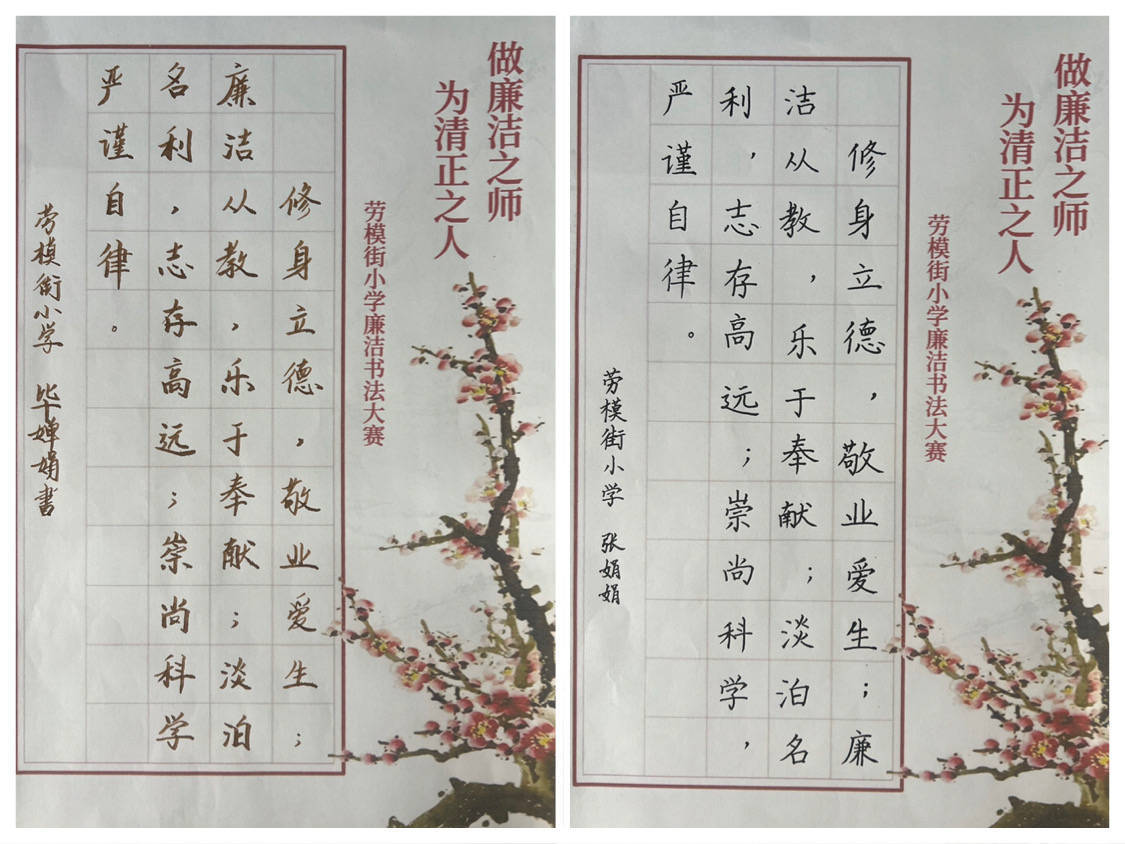 做廉洁之师
为清正之人
劳模街小学廉洁书法大赛
修身立德，敬业爱生；
廉洁从教，乐于奉献；淡泊
名利，志存高远；崇尚科学
严谨自律。
劳模街小学 毕婵娟书
做廉洁之师
为清正之人
劳模街小学廉洁书法大赛
修身立德，敬业爱生；廉
洁从教，乐于奉献；淡泊名
利，志存高远；崇尚科学，
严谨自律。
劳模街小学 张娟娟